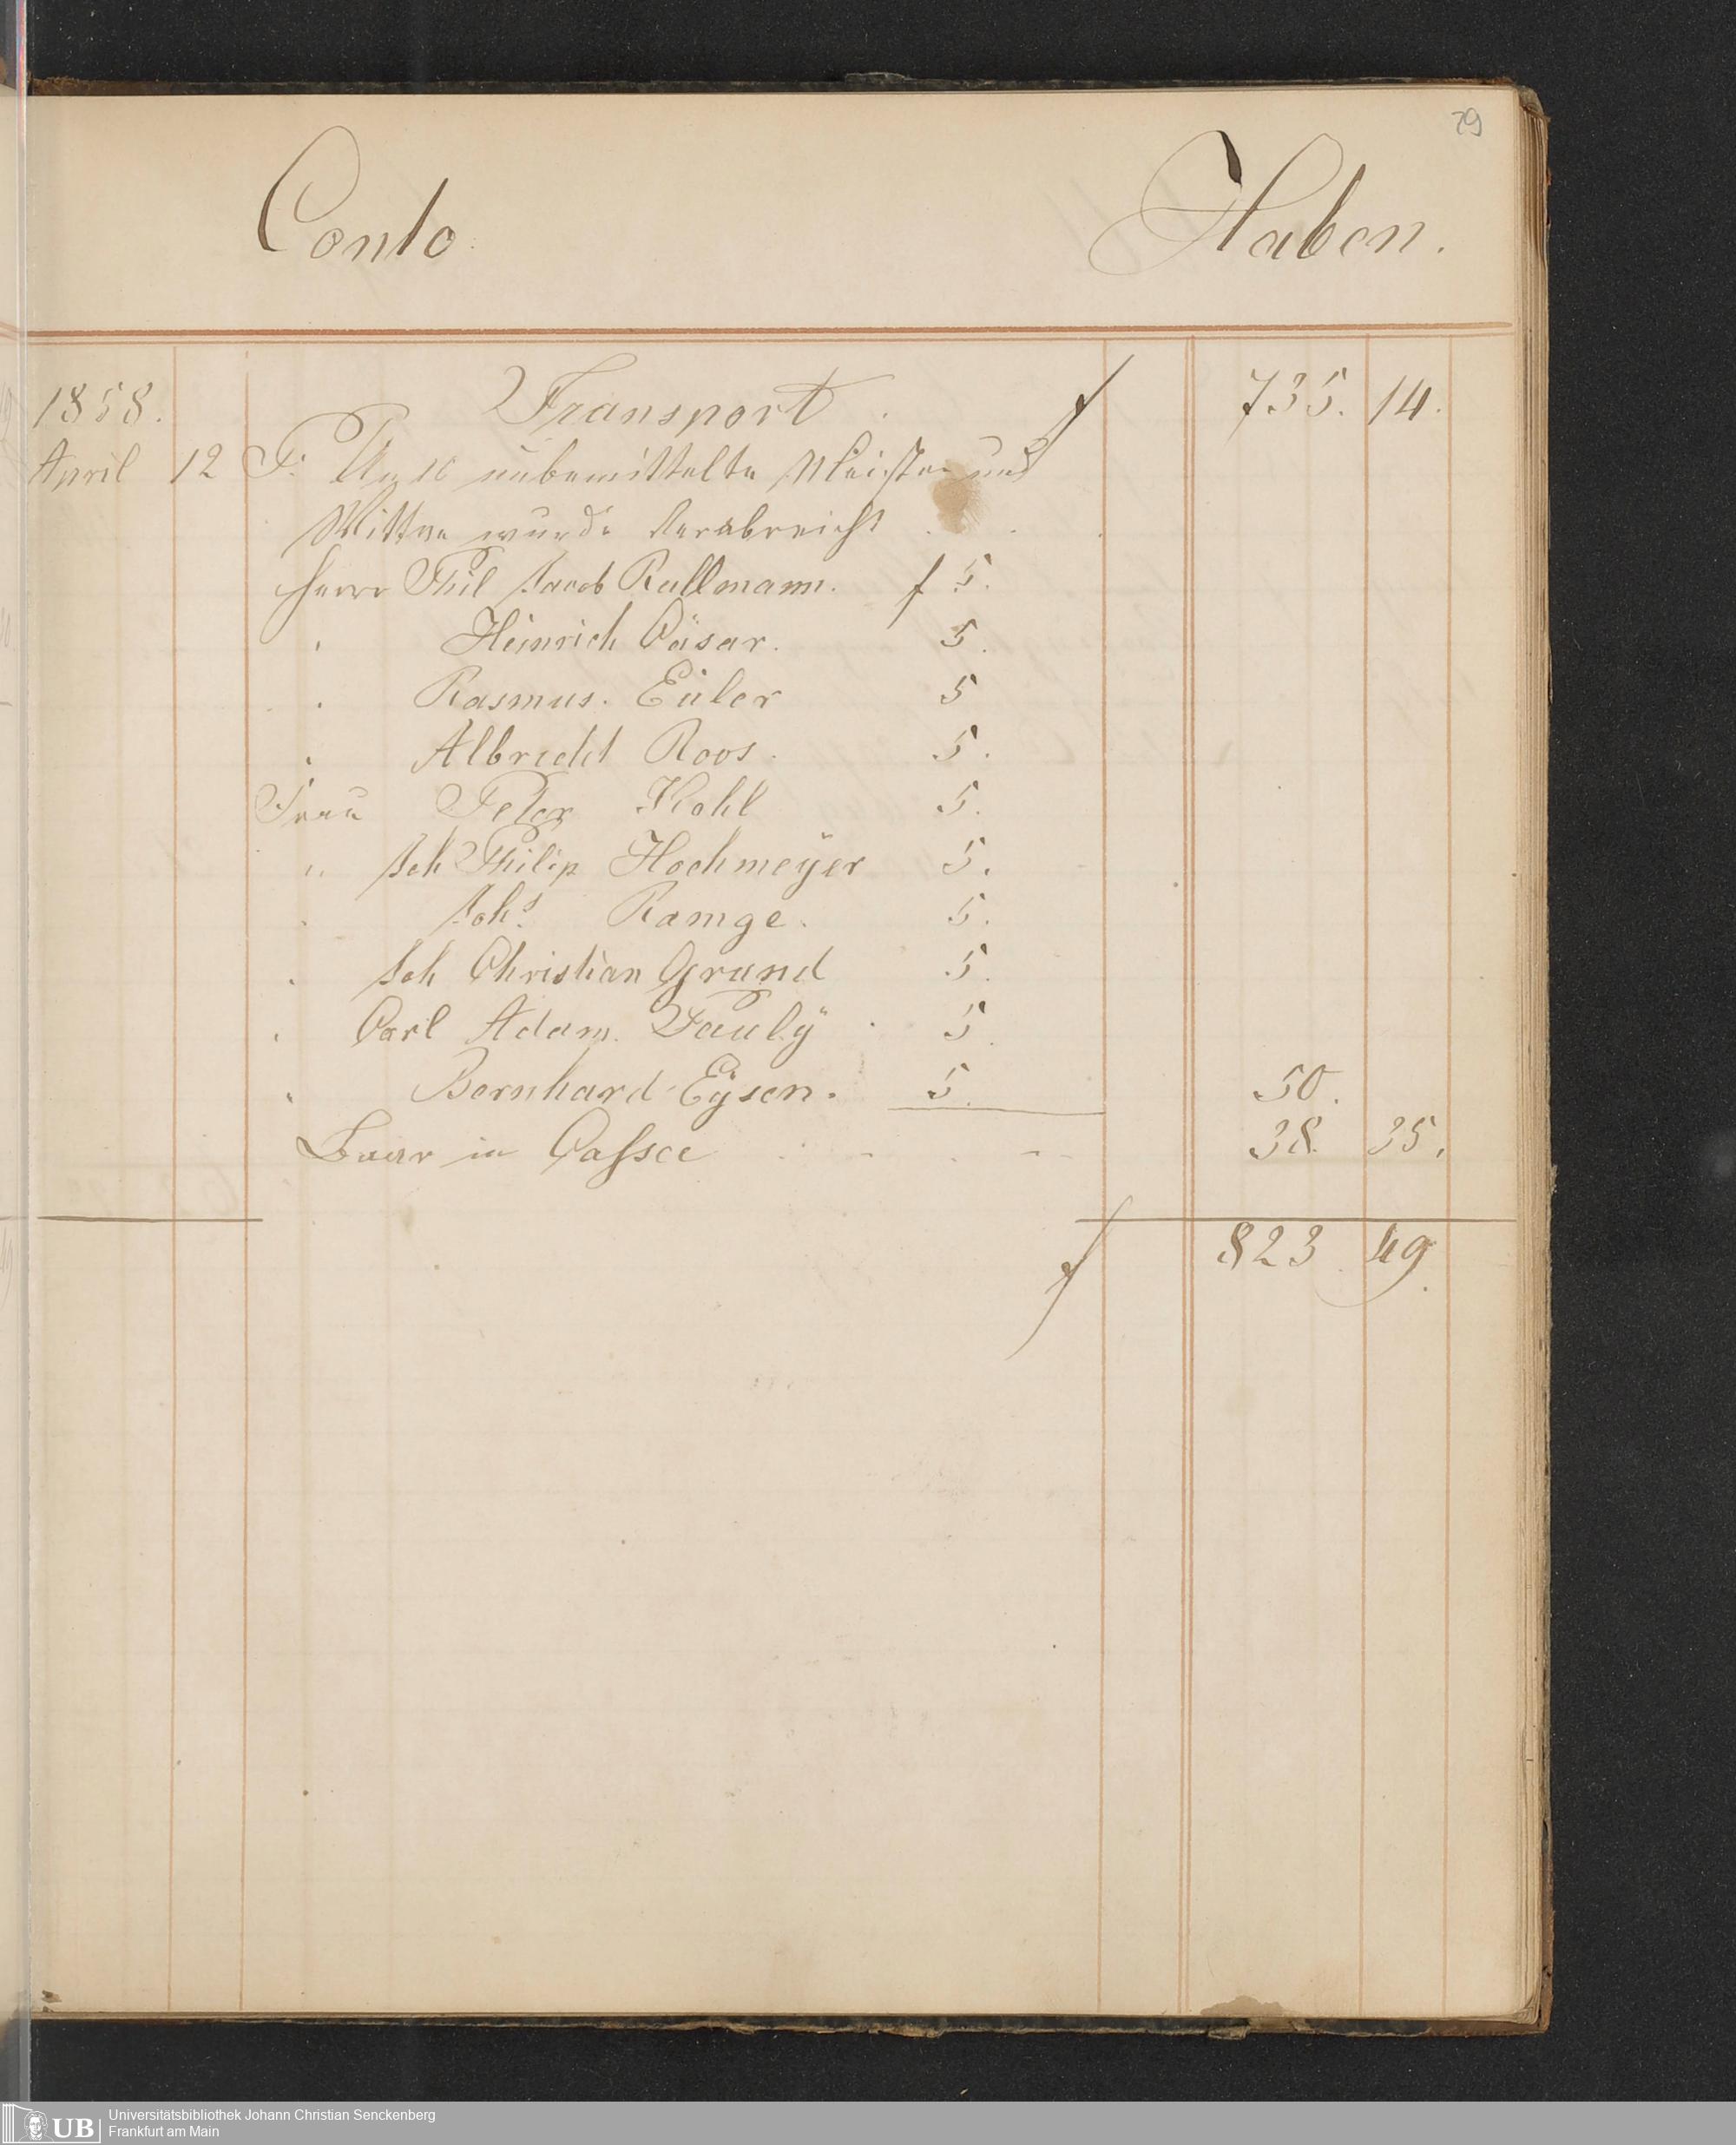 79
Conto Haben.
1858. Transport f 735. 14.
April 12 P. An 10 unbemittelte Meister und
Wittwe wurde verabreicht
Herrn Phil Jacob Kullmann. f 5.
" Heinrich Cäsar. 5.
" Rasmus. Euler 5
" Albrecht Roos. 5.
Frau Peter Kohl 5.
" Joh Philip Hochmeÿer 5.
" Johs. Ramge. 5.
" Joh Christian Grund 5.
" Carl Adam. Paulÿ 5.
" Bernhard Eÿsen. 5. 50.
Baar in Cassee 38. 35.
f 823. 49.
UB Universitätsbibliothek Johann Christian Senckenberg
Frankfurt am Main